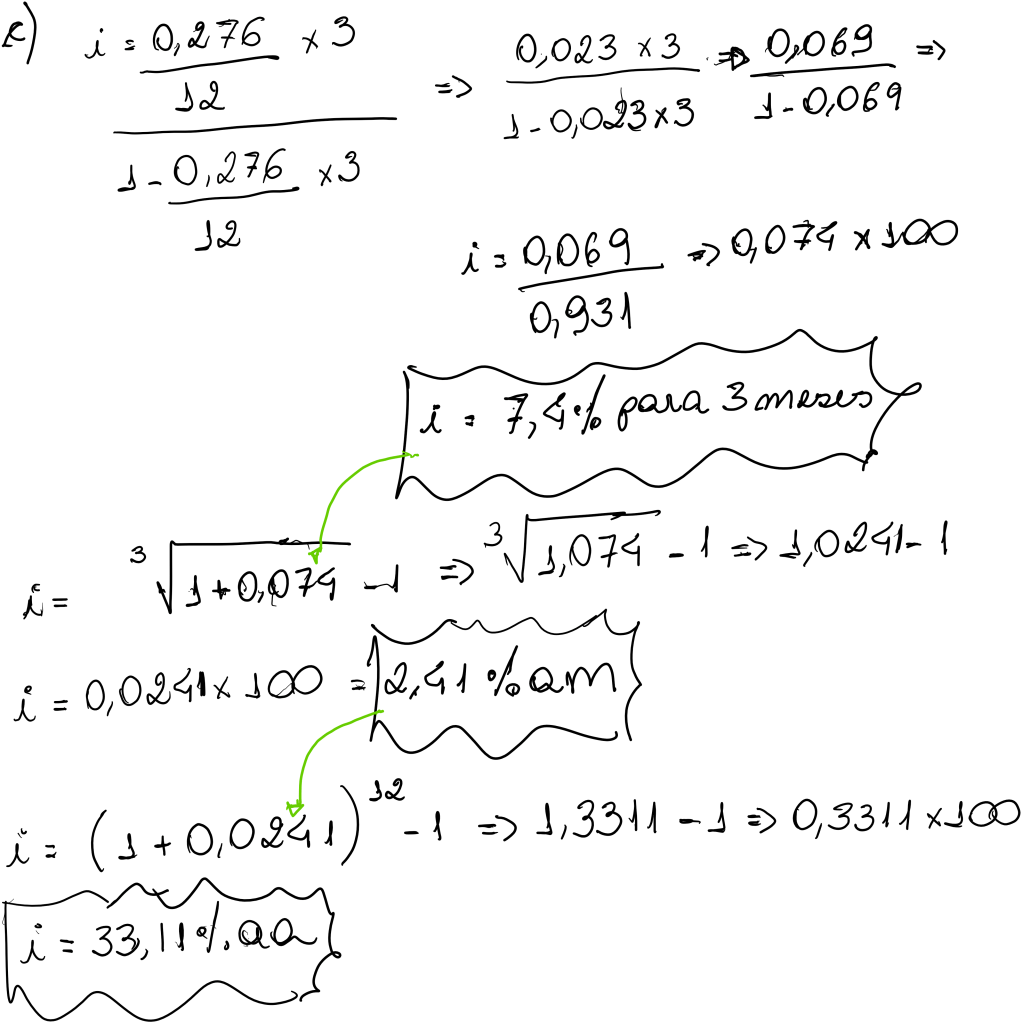 c) i = 0,276/12 × 3 / 1 - 0,276/12 × 3 => 0,023 × 3 / 1 - 0,023 × 3 => 0,069 / 1 - 0,069 =>
i = 0,069 / 0,931 => 0,074 × 100
i = 7,4% para 3 meses
i = ³√1 + 0,074 - 1 => ³√1,074 - 1 => 1,0241 - 1
i = 0,0241 × 100 = 2,41 % am
i = (1 + 0,0241)¹² - 1 => 1,3311 - 1 => 0,3311 × 100
i = 33,11% aa